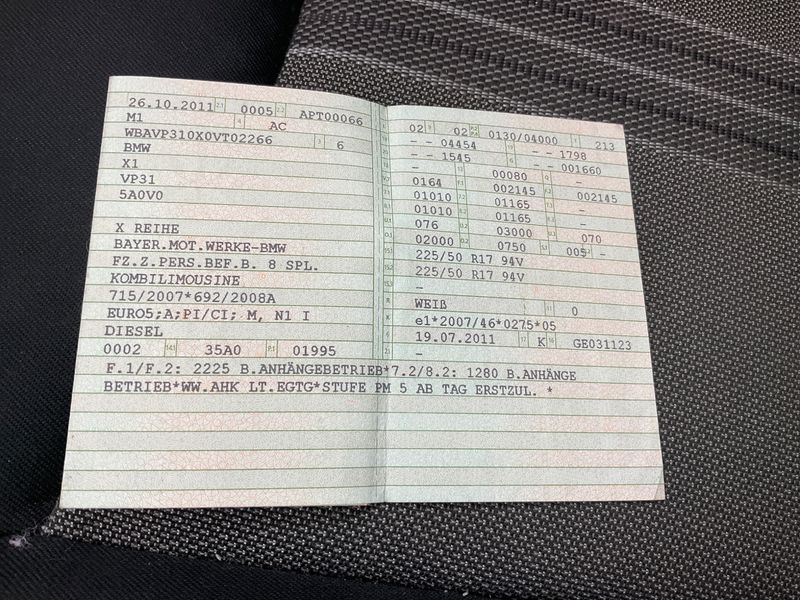 26.10.2011 2.1 0005 2.2 APT00066
M1 4 AC
WBAVP310X0VT02266 3 6
BMW
X1
VP31
5A0V0
X REIHE
BAYER.MOT.WERKE-BMW
FZ.Z.PERS.BEF.B. 8 SPL.
KOMBILIMOUSINE
715/2007*692/2008A
EURO5;A;PI/CI; M, N1 I
DIESEL
0002 35A0 P.1 01995
02 9 02 0130/04000 213
- - 04454 - - 1798
- - 1545 - - 001660
- 00080 -
0164 002145 002145
01010 01165 -
01010 01165 -
076 03000 070
02000 0750 005 -
225/50 R17 94V
225/50 R17 94V
-
R WEIß 11 0
K e1*2007/46*0275*05
6 19.07.2011 17 K 16 GE031123
21 -
F.1/F.2: 2225 B.ANHÄNGEBETRIEB*7.2/8.2: 1280 B.ANHÄNGE
BETRIEB*WW.AHK LT.EGTG*STUFE PM 5 AB TAG ERSTZUL. *